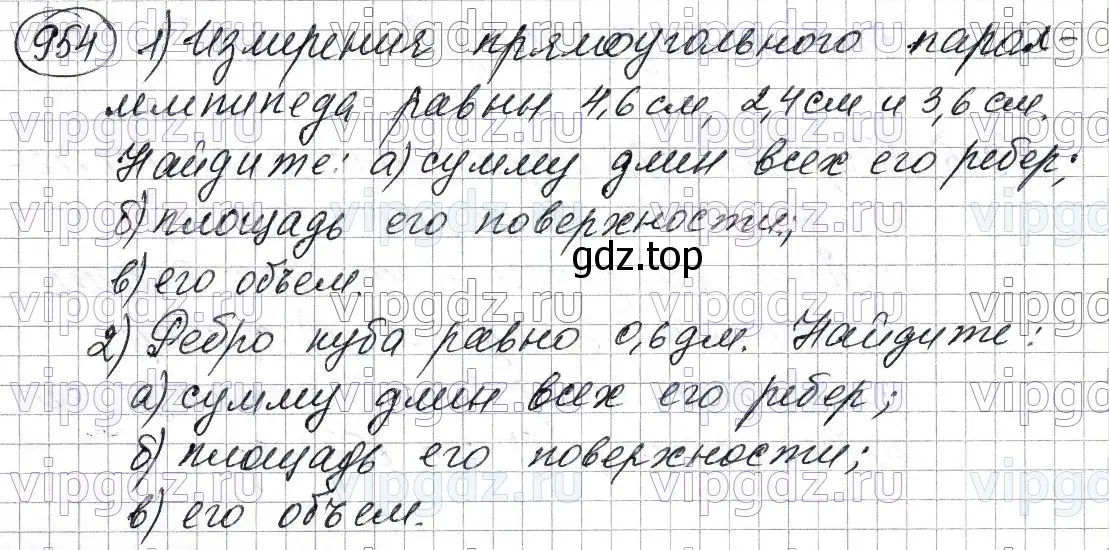 954 1) Измерения прямоугольного парал-
лелепипеда равны 4,6 см, 2,4 см и 3,6 см.
Найдите: а) сумму длин всех его ребер;
б) площадь его поверхности;
в) его объем.
gdz.top
2) Ребро куба равно 0,6 дм. Найдите:
а) сумму длин всех его ребер;
б) площадь его поверхности;
в) его объем.
vipgdz.ru